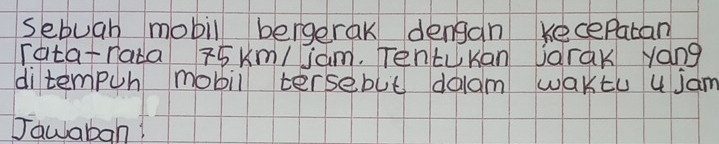 Sebuah mobil bergerak dengan kecepatan
rata-rata 75 km/jam. Tentukan jarak yang
ditempuh mobil tersebut dalam waktu 4 jam
Jawaban: